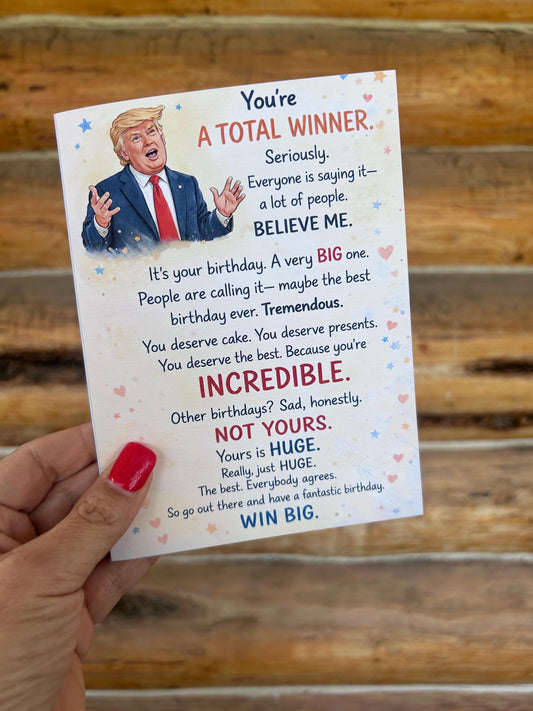 You're
A TOTAL WINNER.
Seriously.
Everyone is saying it—
a lot of people.
BELIEVE ME.
It's your birthday. A very BIG one.
People are calling it— maybe the best
birthday ever. Tremendous.
You deserve cake. You deserve presents.
You deserve the best. Because you're
INCREDIBLE.
Other birthdays? Sad, honestly.
NOT YOURS.
Yours is HUGE.
Really, just HUGE.
The best. Everybody agrees.
So go out there and have a fantastic birthday.
WIN BIG.